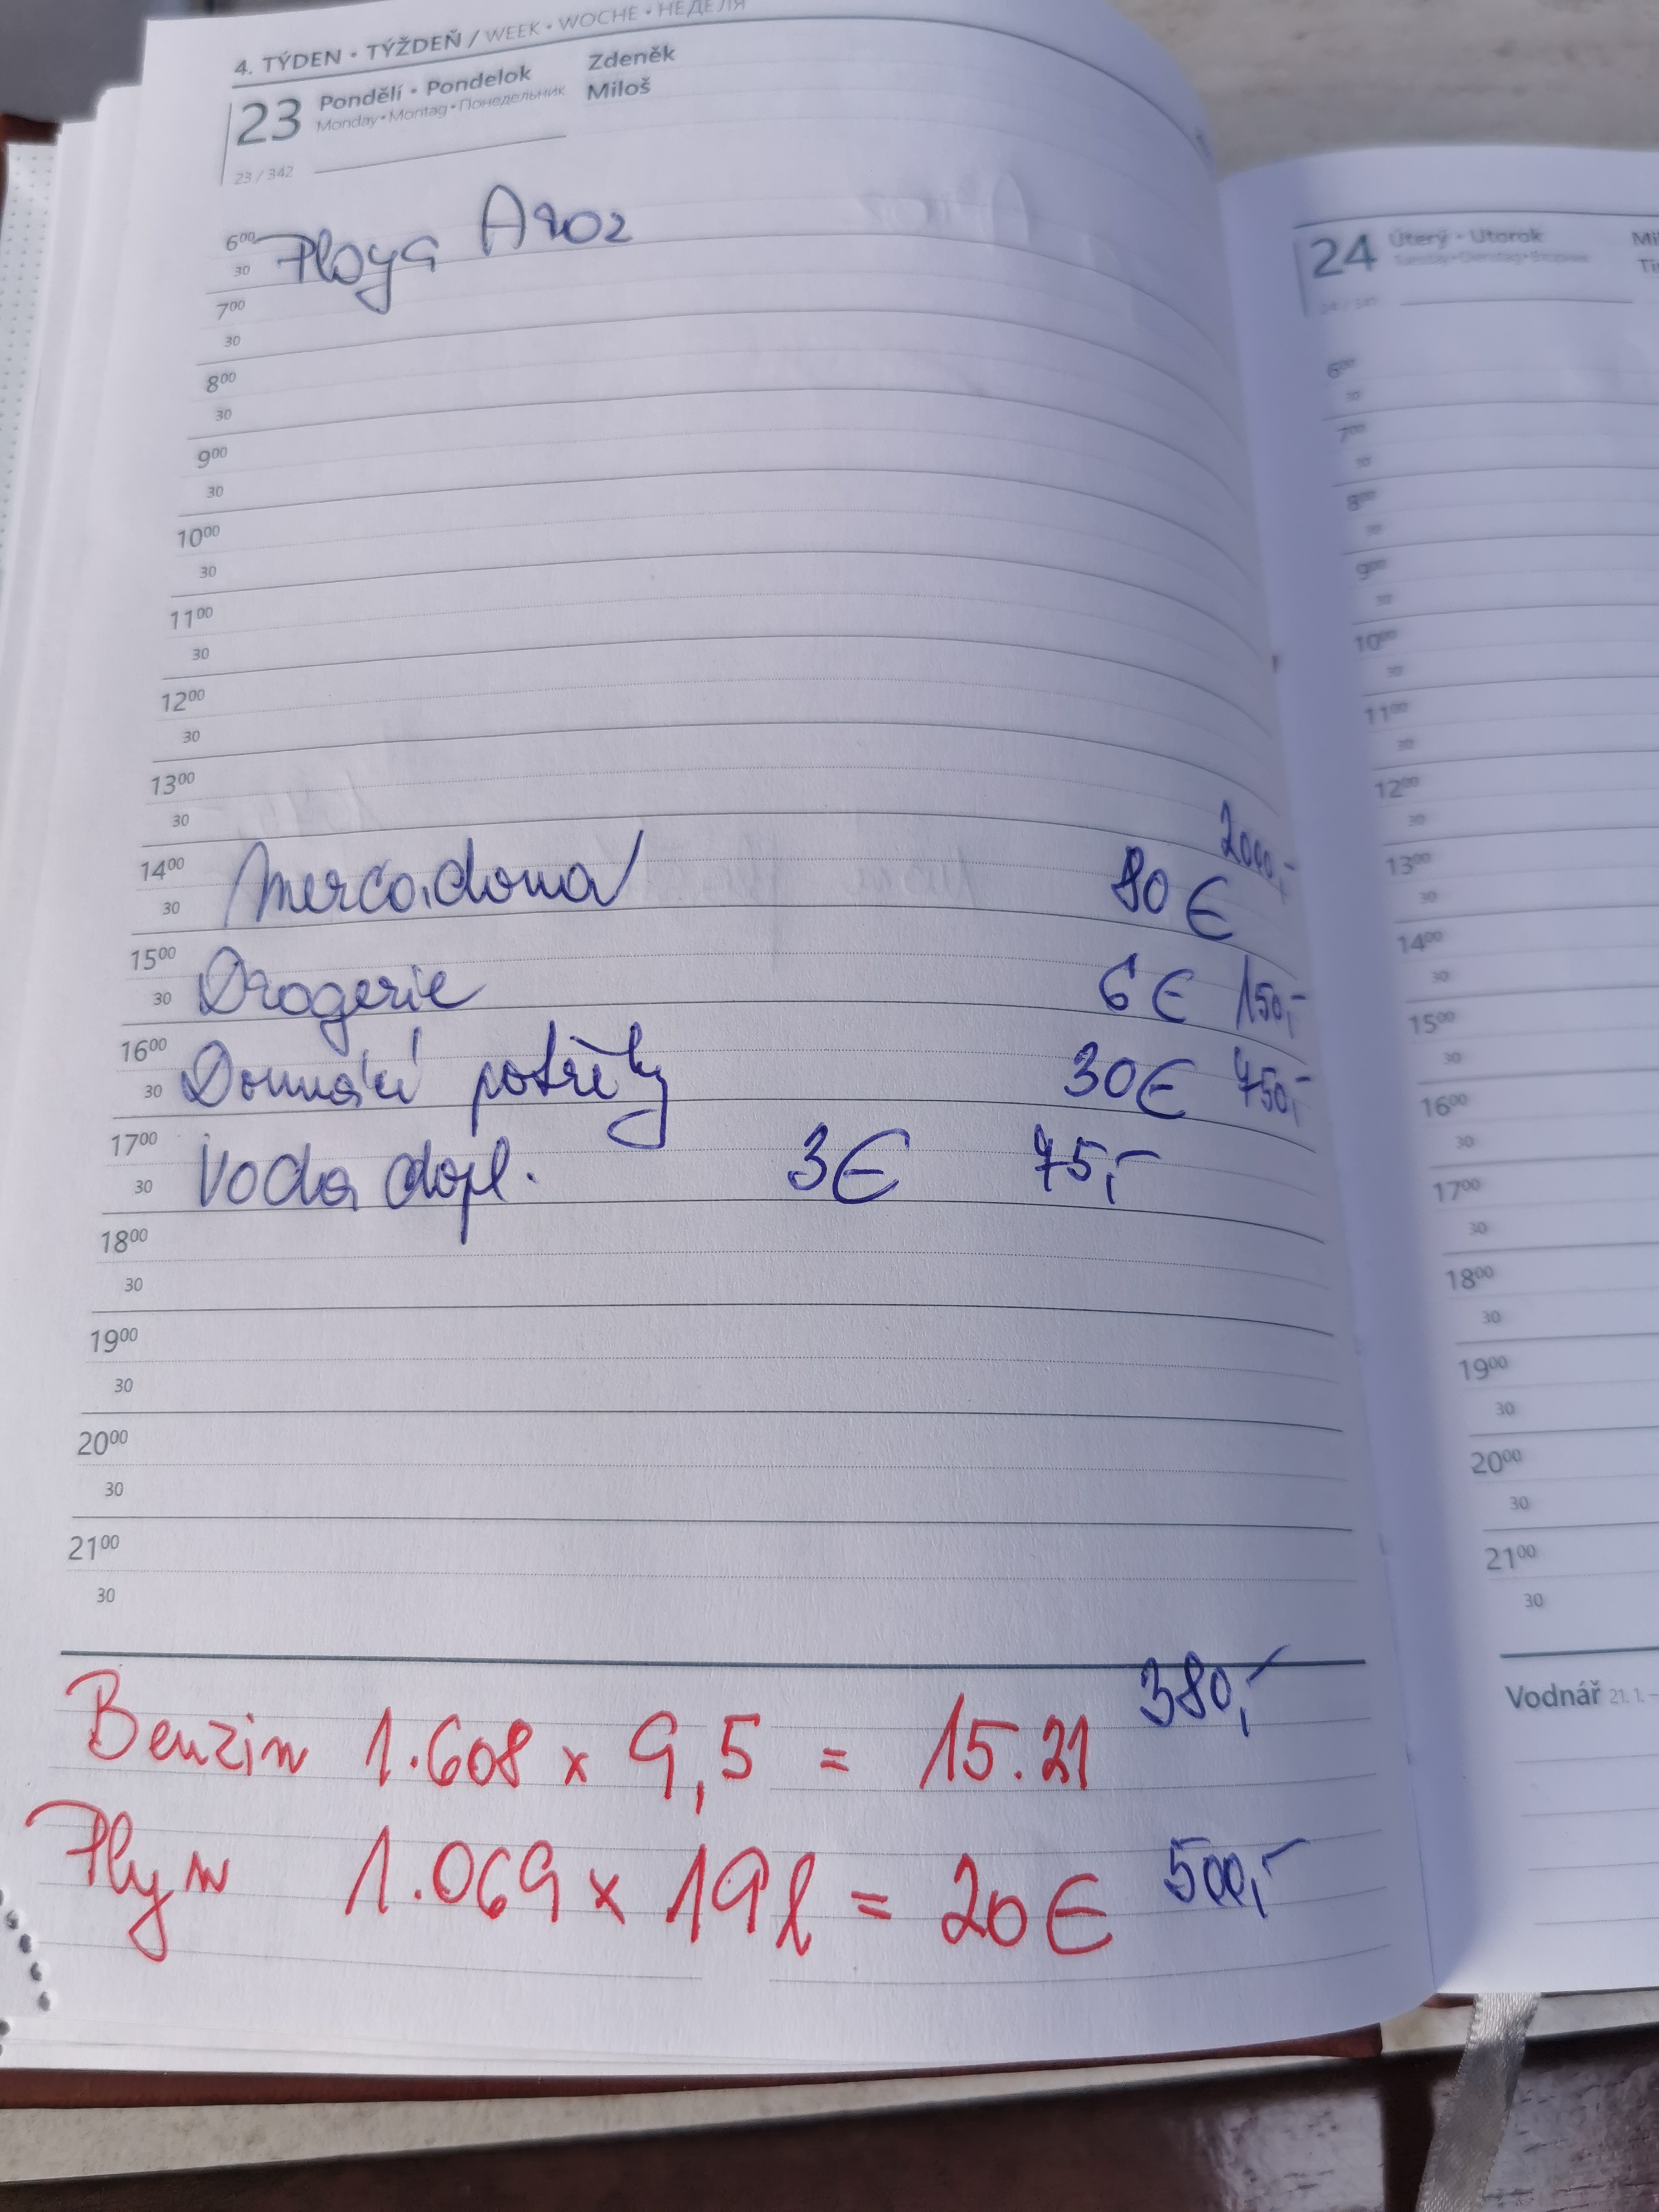 4. TÝDEN • TÝŽDEŇ / WEEK • WOCHE • НЕДЕЛЯ
23 Pondělí • Pondelok Zdeněk
Monday • Montag • Понедельник Miloš
23 / 342
6⁰⁰ Playa Aroz
30
7⁰⁰
30
8⁰⁰
30
9⁰⁰
30
10⁰⁰
30
11⁰⁰
30
12⁰⁰
30
13⁰⁰
30
14⁰⁰ Mercadona 80 € 2000,-
30
15⁰⁰
30 Drogerie 6 € 150,-
16⁰⁰
30 Domácí potřeby 30 € 750,-
17⁰⁰
30 Voda dopl. 3 € 75,-
18⁰⁰
30
19⁰⁰
30
20⁰⁰
30
21⁰⁰
30
Benzin 1.608 x 9,5 = 15.21 380,-
Plyn 1.069 x 19 l = 20 € 500,-
24 Úterý • Utorok
Tuesday • Dienstag • Вторник
6⁰⁰
30
7⁰⁰
30
8⁰⁰
30
9⁰⁰
30
10⁰⁰
30
11⁰⁰
30
12⁰⁰
30
13⁰⁰
30
14⁰⁰
30
15⁰⁰
30
16⁰⁰
30
17⁰⁰
30
18⁰⁰
30
19⁰⁰
30
20⁰⁰
30
21⁰⁰
30
Vodnář 21. 1. –